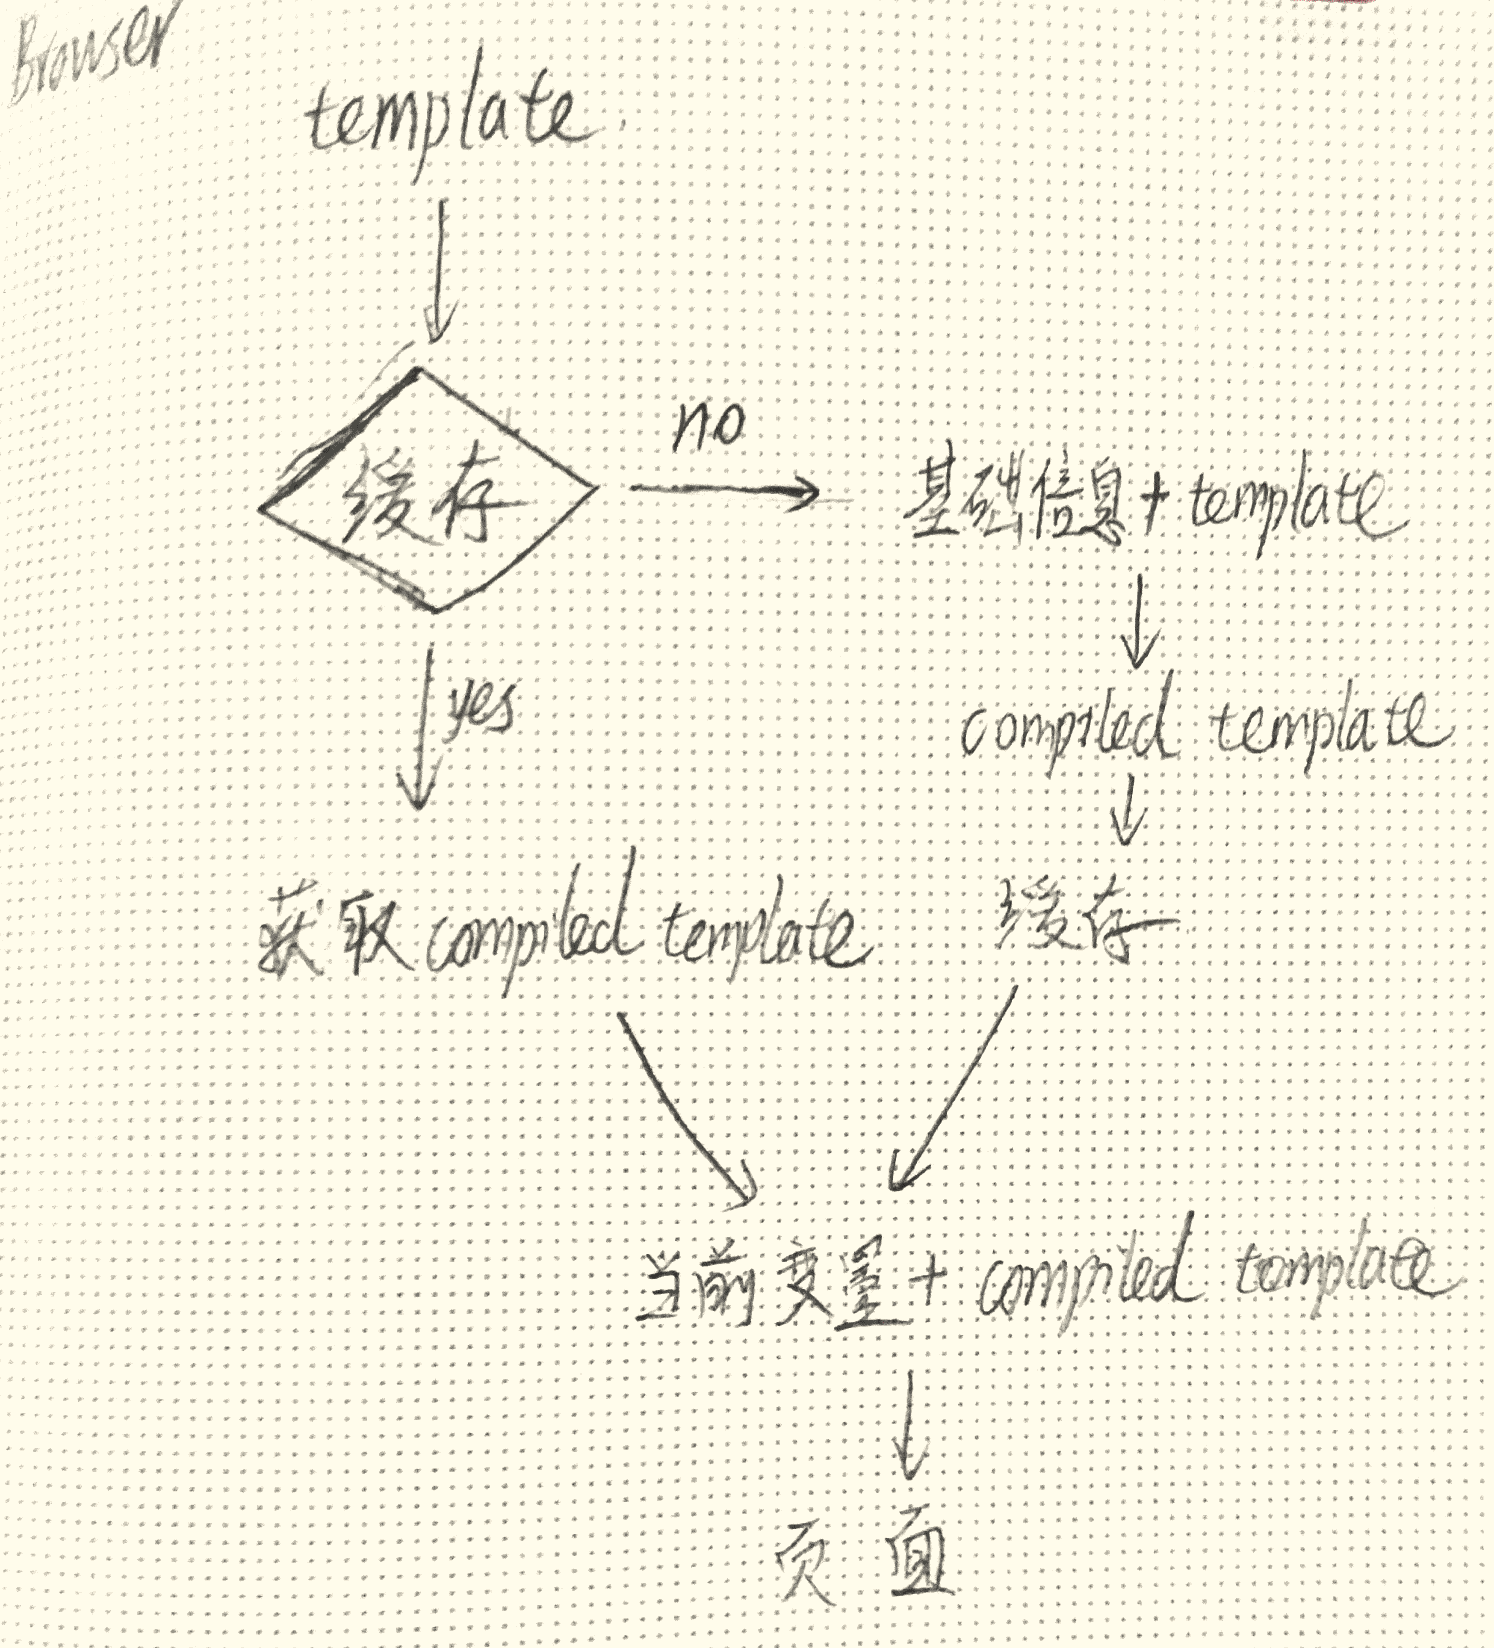 Browser
template
缓存
no
基础信息 + template
yes
compiled template
获取 compiled template
缓存
当前变量 + compiled template
页面